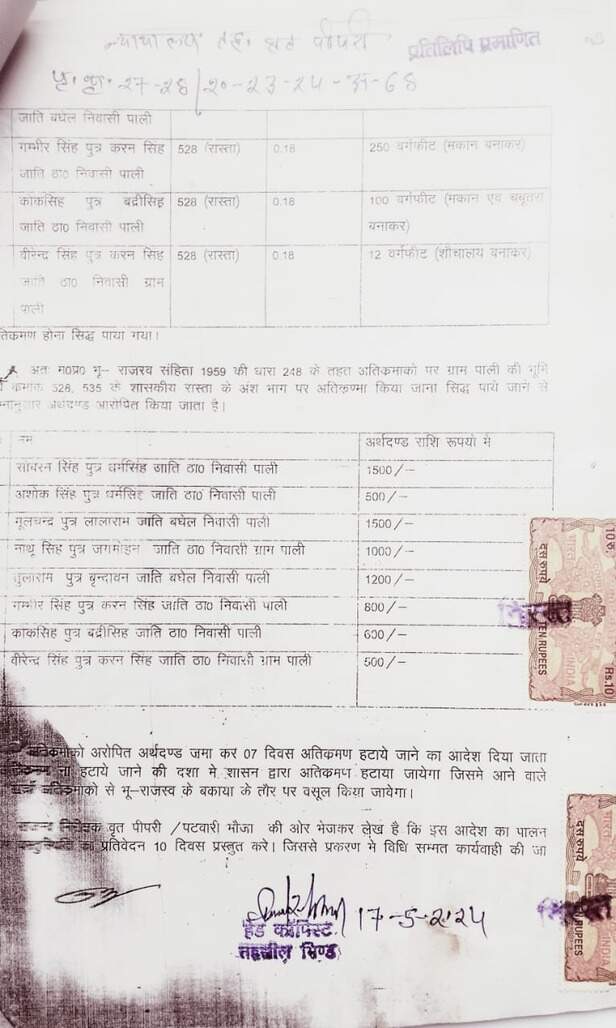 न्यायालय तह. वृत पीपरी प्रतिलिपि प्रमाणित
प्र. क्र. 27-28/20-23-24-अ-68
जाति बघेल निवासी पाली
गम्भीर सिंह पुत्र करन सिंह जाति ठा0 निवासी पाली 528 (रास्ता) 0.18 250 वर्गफीट (मकान बनाकर)
काकसिह पुत्र बद्रीसिह जाति ठा0 निवासी पाली 528 (रास्ता) 0.18 100 वर्गफीट (मकान एव चबूतरा बनाकर)
वीरेन्द्र सिंह पुत्र करन सिंह जाति ठा0 निवासी ग्राम पाली 528 (रास्ता) 0.18 12 वर्गफीट (शौचालय बनाकर)
तिकमण होना सिद्ध पाया गया।
अतः म0प्र0 भू– राजस्व संहिता 1959 की धारा 248 के तहत अतिकमाको पर ग्राम पाली की भूमि
कमाक 528, 535 के शासकीय रास्ता के अंश भाग पर अतिकण्मा किया जाना सिद्ध पाये जाने से
नानुसार अर्थदण्ड आरोपित किया जाता है।
नाम अर्थदण्ड राशि रूपयो में
सावरन सिंह पुत्र धर्मसिंह जाति ठा0 निवासी पाली 1500/–
अशोक सिंह पुत्र धर्मसिह जाति ठा0 निवासी पाली 500/–
मूलचन्द्र पुत्र लालाराम जाति बघेल निवासी पाली 1500/–
नाथू सिंह पुत्र जगमोहन जाति ठा0 निवासी ग्राम पाली 1000/–
तुलाराम पुत्र बृन्दावन जाति बघेल निवासी पाली 1200/–
गम्भीर सिंह पुत्र करन सिंह जाति ठा0 निवासी पाली 800/–
काकसिह पुत्र बद्रीसिह जाति ठा0 निवासी पाली 600/–
वीरेन्द्र सिंह पुत्र करन सिंह जाति ठा0 निवासी ग्राम पाली 500/–
10रु. दस रुपये भारत
TEN RUPEES INDIA Rs.10
निरस्त
अतिकमाको आरोपित अर्थदण्ड जमा कर 07 दिवस अतिकमण हटाये जाने का आदेश दिया जाता
ना हटाये जाने की दशा मे शासन द्वारा अतिकमण हटाया जायेगा जिसमे आने वाले
अतिकमाको से भू–राजस्व के बकाया के तौर पर वसूल किया जावेगा।
वृत पीपरी /पटवारी मौजा की ओर भेजकर लेख है कि इस आदेश का पालन
प्रतिवेदन 10 दिवस प्रस्तुत करे। जिससे प्रकरण मे विधि सम्मत कार्यवाही की जा
17-5-2024
हेड कॉपिस्ट
तहसील भिण्ड
दस रुपये
TEN RUPEES INDIA
निरस्त